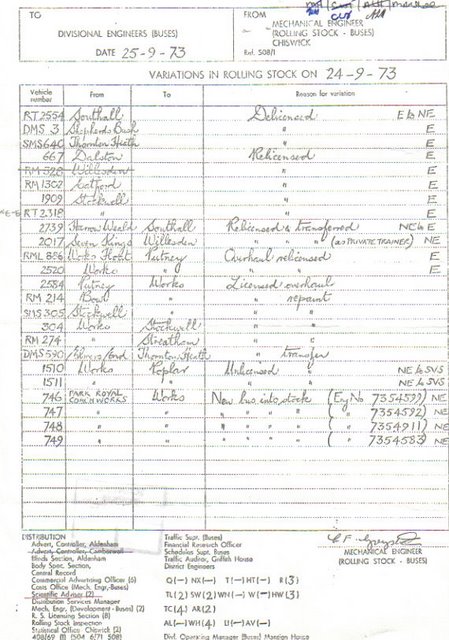 TO
DIVISIONAL ENGINEERS (BUSES)
DATE 25-9-73
FROM
MECHANICAL ENGINEER
(ROLLING STOCK - BUSES)
CHISWICK
Ref. 508/1
VARIATIONS IN ROLLING STOCK ON 24-9-73
Vehicle number From To Reason for variation
RT 2554 Southall Delicensed E to NE
DMS 3 Shepherds Bush " E
SMS 640 Thornton Heath " E
667 Dalston Relicensed E
RM 528 Willesden " E
RM 1302 Catford " E
1909 Stockwell " E
RT 2318 " " E
2739 Harrow Weald Southall Relicensed & transferred NE to E
2017 Seven Kings Willesden " " " (as PRIVATE TRAINER) NE
RML 886 Works Float Putney Overhaul relicensed E
2520 Works " " " E
2584 Putney Works Licensed overhaul
RM 214 Bow " " repaint
SMS 305 Stockwell " " "
304 Works Stockwell " "
RM 274 " Streatham " "
DMS 590 Elmers End Thornton Heath " transfer
1510 Works Poplar Unlicensed " NE to SVS
1511 " " " " NE to SVS
746 PARK ROYAL COACHWORKS Works New bus into stock (Eng No 7354599) NE
747 " " " " " " ( " 7354592) NE
748 " " " " " " ( " 7354911) NE
749 " " " " " " ( " 7354583) NE
DISTRIBUTION
Advert. Controller, Aldenham
Advert. Controller, Camberwell
Blinds Section, Aldenham
Body Spec. Section,
Central Record
Commercial Advertising Officer (5)
Costs Office (Mech. Engr.-Buses)
Scientific Adviser (2)
Distribution Services Manager
Mech. Engr. (Development - Buses) (2)
R. S. Licensing Section (8)
Rolling Stock Inspection
Statistical Officer Chiswick (2)
Traffic Supt. (Buses)
Financial Research Officer
Schedules Supt. Buses
Traffic Auditor, Griffith House
District Engineers
Q (-) NX (-) T (-) HT (-) R (3)
TL (2) SW (2) WN (-) W (-) HW (3)
TC (4) AR (2)
AL (-) WH (4) U (-) AV (-)
Divl. Operating Manager (Buses) Mansion House
MECHANICAL ENGINEER
(ROLLING STOCK - BUSES)